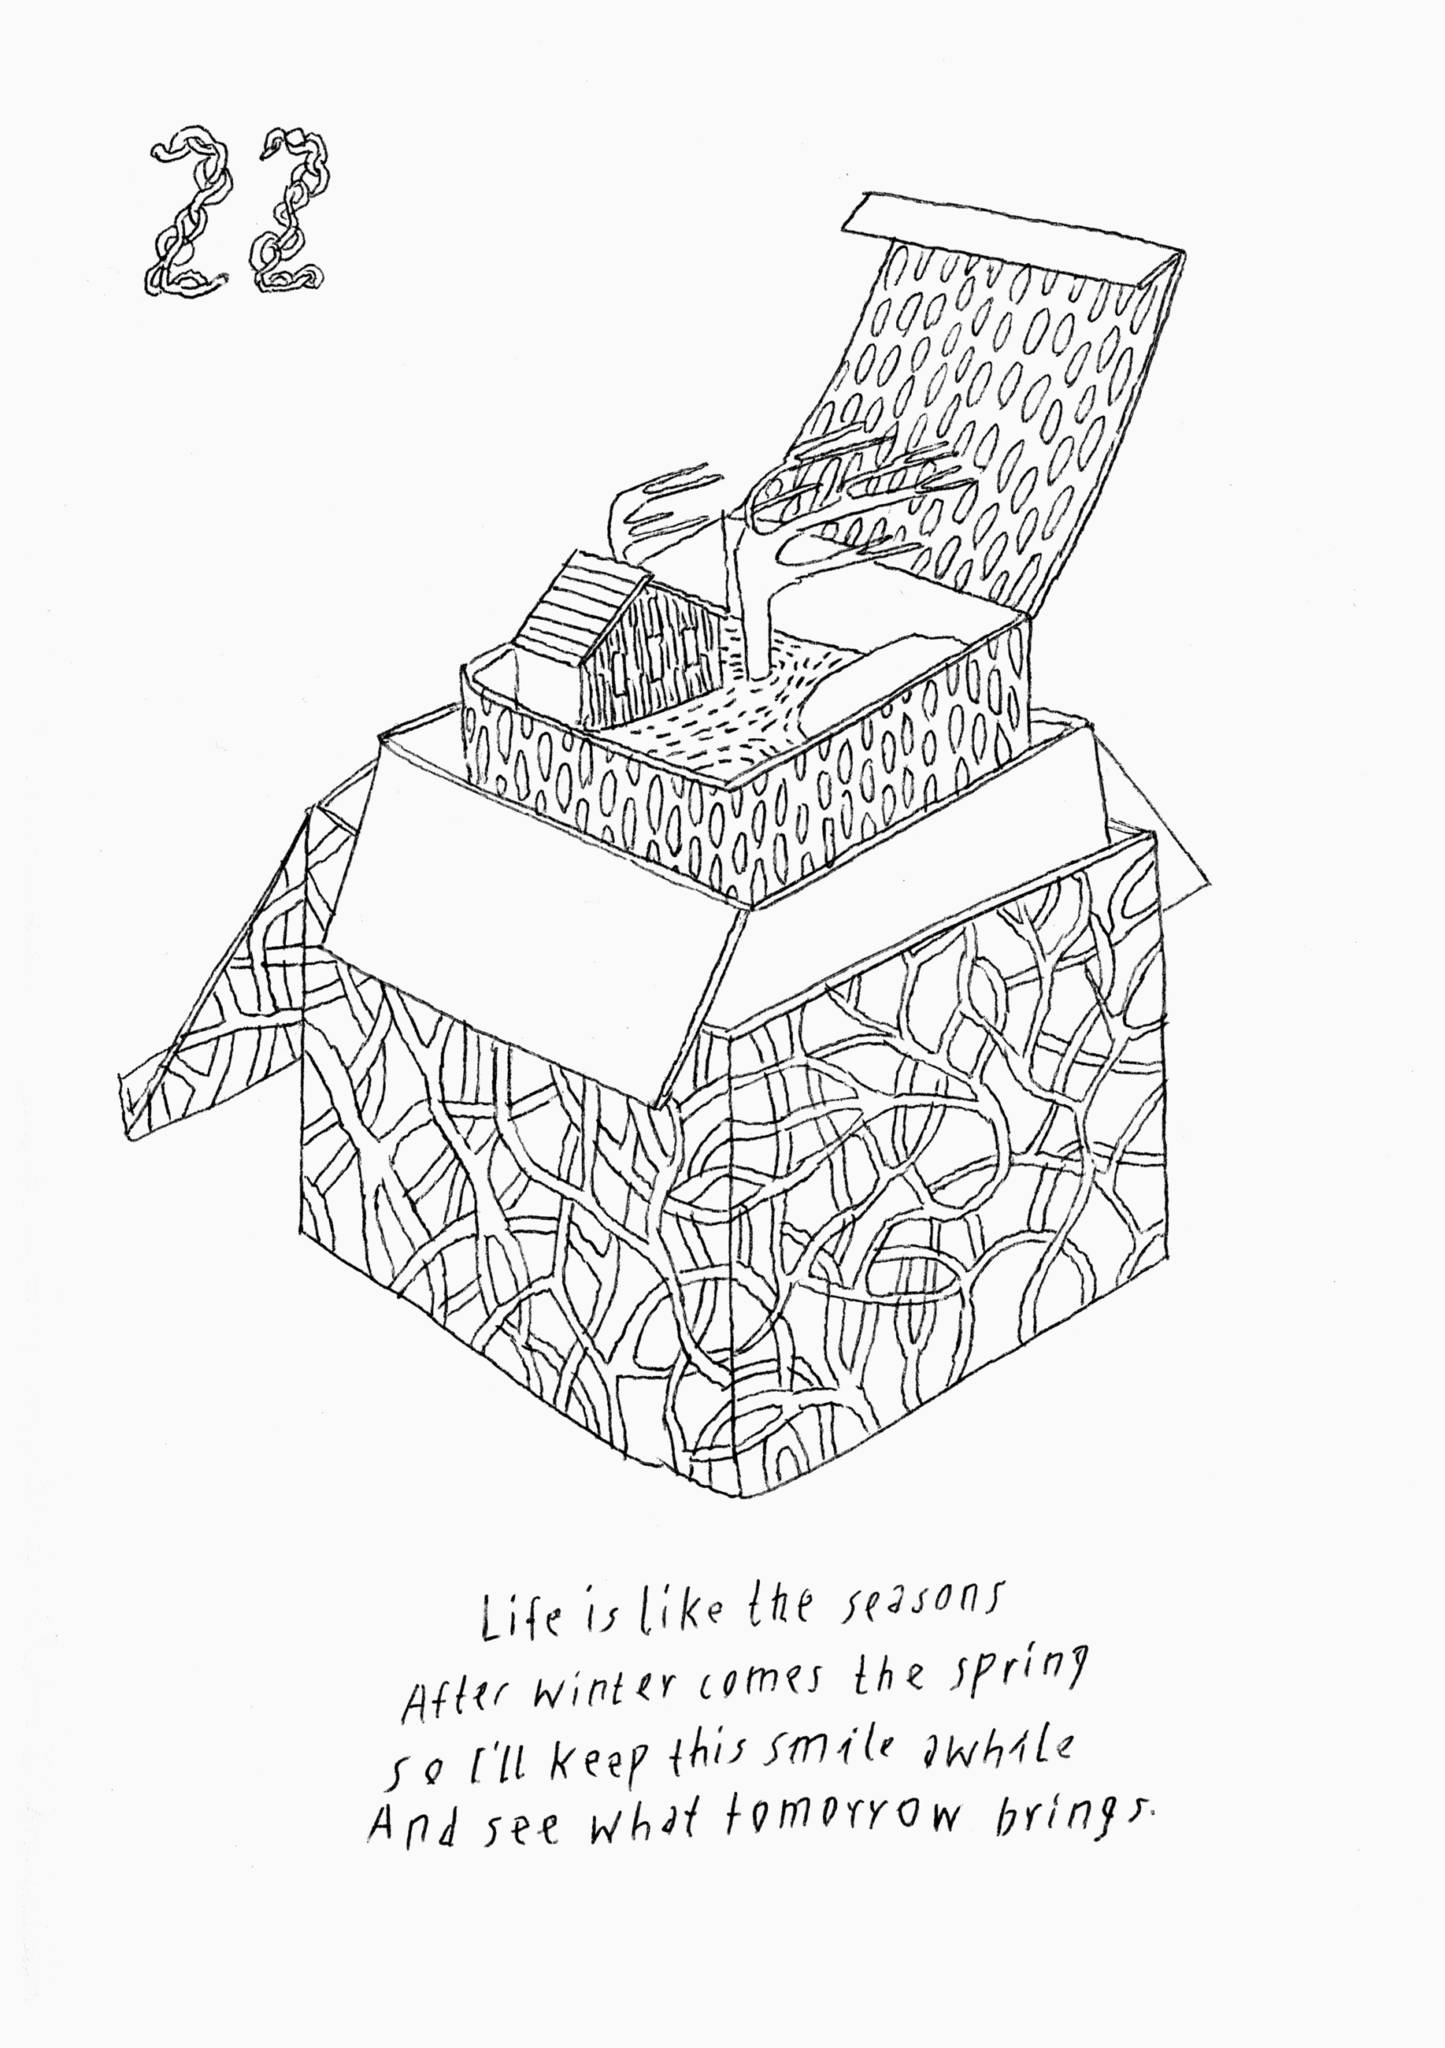 22
Life is like the seasons
After winter comes the spring
so I'll keep this smile awhile
And see what tomorrow brings.